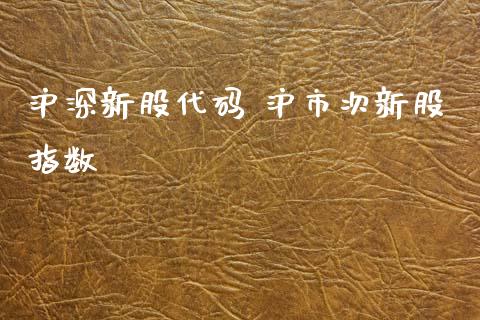 沪深新股代码 沪市次新股
指数